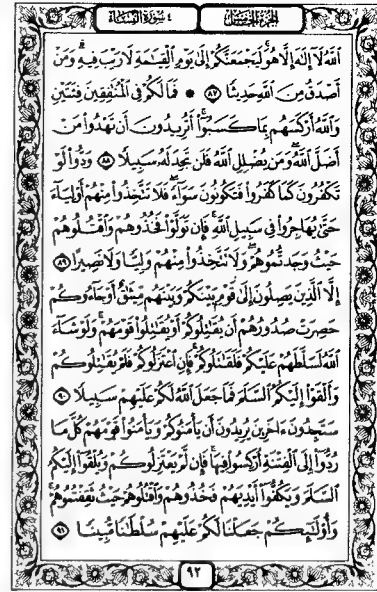 الجزء الخامس
٤ سورة النساء
ٱللَّهُ لَآ إِلَٰهَ إِلَّا هُوَ لَيَجْمَعَنَّكُمْ إِلَىٰ يَوْمِ ٱلْقِيَٰمَةِ لَا رَيْبَ فِيهِ وَمَنْ
أَصْدَقُ مِنَ ٱللَّهِ حَدِيثًا ۝٨٧ ۞ فَمَا لَكُمْ فِى ٱلْمُنَٰفِقِينَ فِئَتَيْنِ
وَٱللَّهُ أَرْكَسَهُم بِمَا كَسَبُوٓا۟ أَتُرِيدُونَ أَن تَهْدُوا۟ مَنْ
أَضَلَّ ٱللَّهُ وَمَن يُضْلِلِ ٱللَّهُ فَلَن تَجِدَ لَهُۥ سَبِيلًا ۝٨٨ وَدُّوا۟ لَوْ
تَكْفُرُونَ كَمَا كَفَرُوا۟ فَتَكُونُونَ سَوَآءً فَلَا تَتَّخِذُوا۟ مِنْهُمْ أَوْلِيَآءَ
حَتَّىٰ يُهَاجِرُوا۟ فِى سَبِيلِ ٱللَّهِ فَإِن تَوَلَّوْا۟ فَخُذُوهُمْ وَٱقْتُلُوهُمْ
حَيْثُ وَجَدتُّمُوهُمْ وَلَا تَتَّخِذُوا۟ مِنْهُمْ وَلِيًّا وَلَا نَصِيرًا ۝٨٩
إِلَّا ٱلَّذِينَ يَصِلُونَ إِلَىٰ قَوْمٍۭ بَيْنَكُمْ وَبَيْنَهُم مِّيثَٰقٌ أَوْ جَآءُوكُمْ
حَصِرَتْ صُدُورُهُمْ أَن يُقَٰتِلُوكُمْ أَوْ يُقَٰتِلُوا۟ قَوْمَهُمْ وَلَوْ شَآءَ
ٱللَّهُ لَسَلَّطَهُمْ عَلَيْكُمْ فَلَقَٰتَلُوكُمْ فَإِنِ ٱعْتَزَلُوكُمْ فَلَمْ يُقَٰتِلُوكُمْ
وَأَلْقَوْا۟ إِلَيْكُمُ ٱلسَّلَمَ فَمَا جَعَلَ ٱللَّهُ لَكُمْ عَلَيْهِمْ سَبِيلًا ۝٩٠
سَتَجِدُونَ ءَاخَرِينَ يُرِيدُونَ أَن يَأْمَنُوكُمْ وَيَأْمَنُوا۟ قَوْمَهُمْ كُلَّ مَا
رُدُّوٓا۟ إِلَى ٱلْفِتْنَةِ أُرْكِسُوا۟ فِيهَا فَإِن لَّمْ يَعْتَزِلُوكُمْ وَيُلْقُوٓا۟ إِلَيْكُمُ
ٱلسَّلَمَ وَيَكُفُّوٓا۟ أَيْدِيَهُمْ فَخُذُوهُمْ وَٱقْتُلُوهُمْ حَيْثُ ثَقِفْتُمُوهُمْ
وَأُو۟لَٰٓئِكُمْ جَعَلْنَا لَكُمْ عَلَيْهِمْ سُلْطَٰنًا مُّبِينًا ۝٩١
٩٢